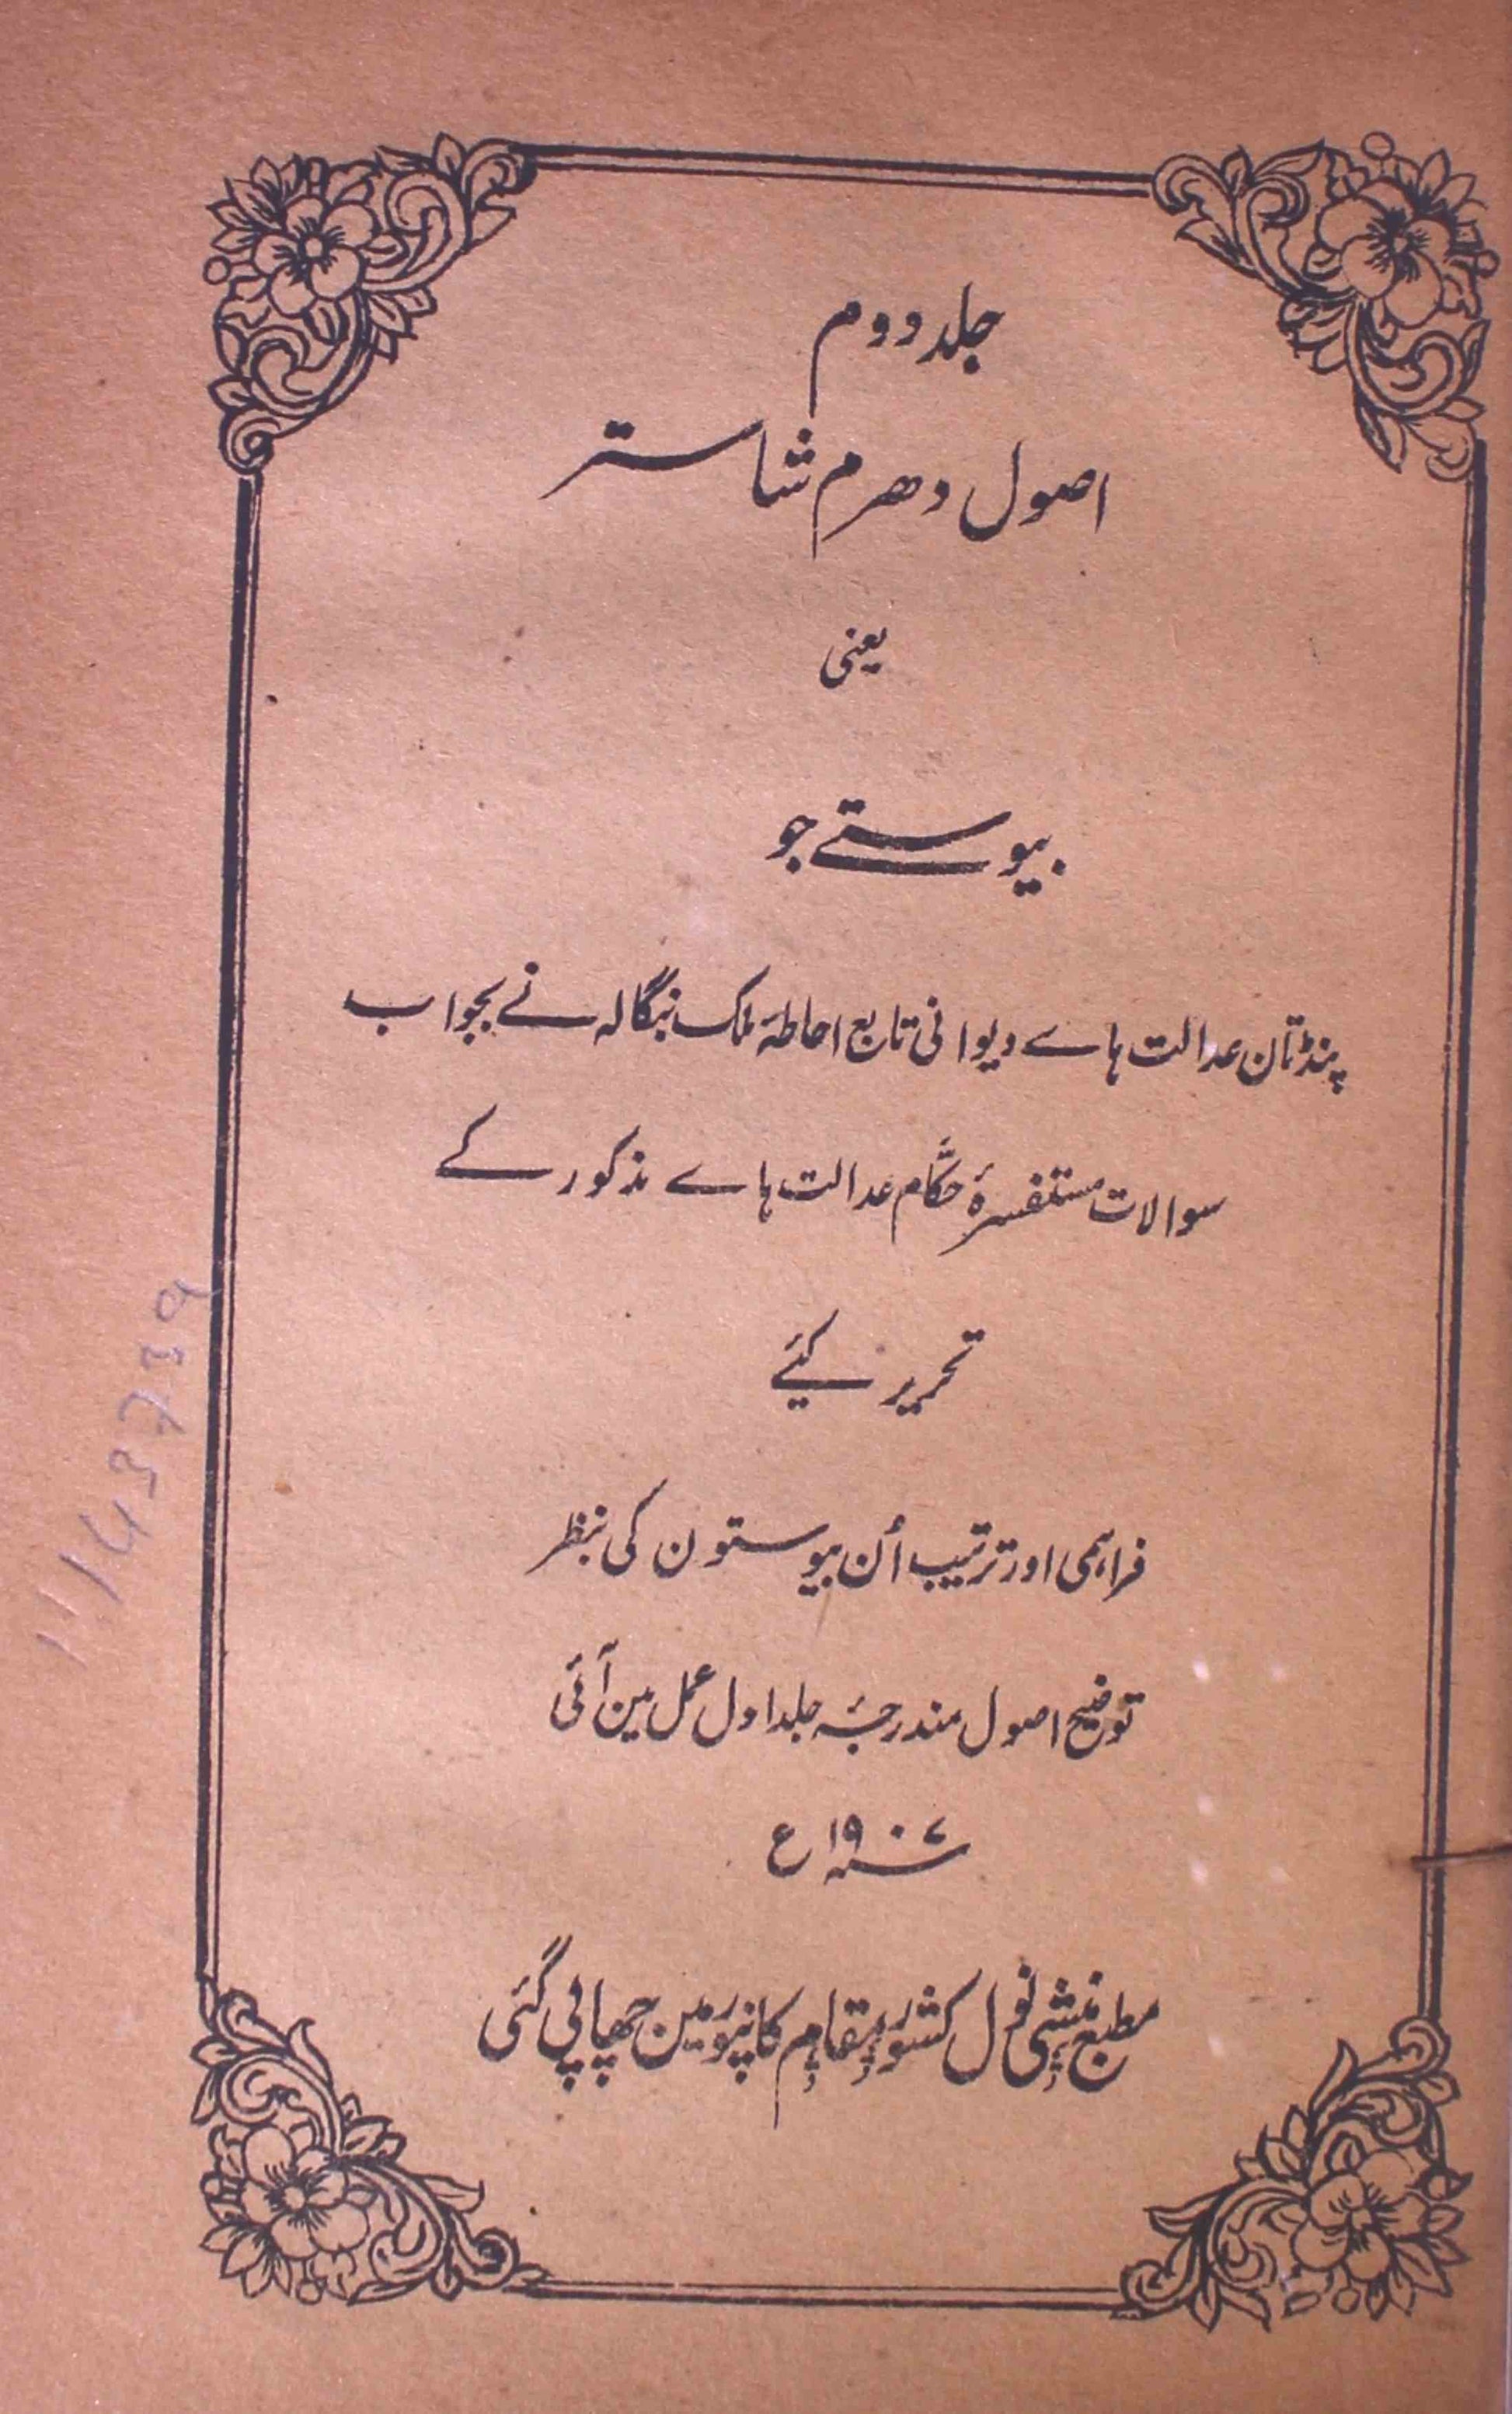 جلد دوم
اصول دھرم شاستر
یعنی
بیوستے جو
پنڈتان عدالت ہاے دیوانی تابع احاطۂ ملک بنگالہ نے بجواب
سوالات مستفسرۂ حکّام عدالت ہاے مذکور کے
تحریر کیئے
فراہمی اور ترتیب اُن بیوستون کی بنظر
توضیح اصول مندرجۂ جلد اول عمل مین آئی
سنہ ۱۹۰۷ع
مطبع منشی نول کشور بمقام کانپور مین چھاپی گئی